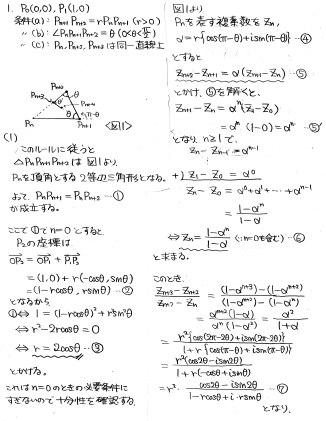 1. P₀(0,0), P₁(1,0)
条件(a): Pₙ₊₁Pₙ₊₂ = rPₙPₙ₊₁ (r>0)
〃 (b): ∠PₙPₙ₊₁Pₙ₊₂ = θ (0<θ<π/2)
〃 (c): Pₙ, Pₙ₊₂, Pₙ₊₃ は同一直線上
Pₙ₊₃
Pₙ₊₂
θ
Pₙ
Pₙ₊₁
π-θ
<図1>
(1)
このルールに従うと
△PₙPₙ₊₁Pₙ₊₂ は図1より
Pₙを頂角とする2等辺三角形となる。
よって PₙPₙ₊₁ = PₙPₙ₊₂ …①
が成立する。
ここで①で n=0 とすると
P₂の座標は
OP₂ = OP₁ + P₁P₂
= (1,0) + r(-cosθ, sinθ)
= (1-rcosθ, rsinθ) …②
となるから
①⇔ 1 = (1-rcosθ)² + r²sin²θ
⇔ r² - 2rcosθ = 0
⇔ r = 2cosθ …③
とかける。
これは n=0 のときの必要条件に
すぎないので十分性を確認する。
図1より
Pₙを表す複素数を zₙ,
α = r{cos(π-θ) + isin(π-θ)} …④
とすると
zₙ₊₂ - zₙ₊₁ = α(zₙ₊₁ - zₙ) …⑤
とかけ, ⑤を解くと,
zₙ₊₁ - zₙ = αⁿ(z₁ - z₀)
= αⁿ(1-0) = αⁿ …⑤'
となり, n≥1 で,
zₙ - zₙ₋₁ = αⁿ⁻¹
+) z₁ - z₀ = α⁰
zₙ - z₀ = α⁰ + α¹ + … + αⁿ⁻¹
= (1-αⁿ)/(1-α)
⇔ zₙ = (1-αⁿ)/(1-α) (∵ n=0も含む) …⑥
と求まる。
このとき,
(zₙ₊₃ - zₙ₊₂)/(zₙ₊₂ - zₙ) = ((1-αⁿ⁺³) - (1-αⁿ⁺²))/((1-αⁿ⁺²) - (1-αⁿ))
= αⁿ⁺²(1-α)/αⁿ(1-α²) = α²/(1+α)
= r²{cos(2π-2θ) + isin(2π-2θ)}/(1 + r{cos(π-θ) + isin(π-θ)})
= r²(cos2θ - isin2θ)/(1 + r(-cosθ + isinθ))
= r² · (cos2θ - isin2θ)/(1 - rcosθ + i·rsinθ) …⑦
となり,